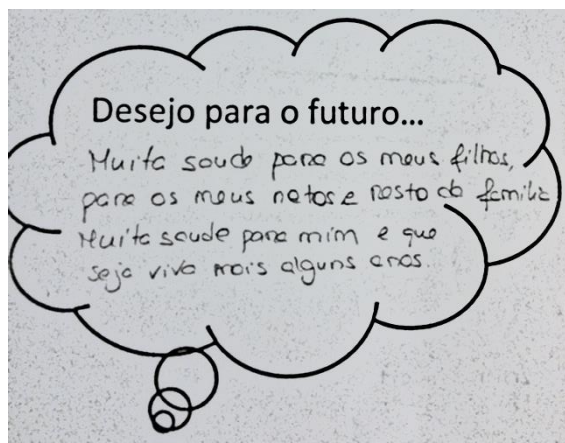 Desejo para o futuro...
Muita saude para os meus filhos,
para os meus netos e resto da familia
Muita saude para mim e que
seja viva mais alguns anos.